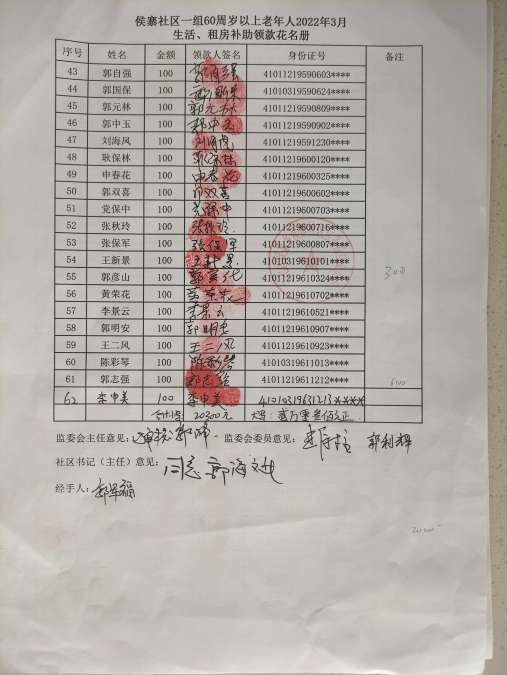 侯寨社区一组60周岁以上老年人2022年3月
生活、租房补助领款花名册
序号 姓名 金额 领款人签名 身份证号 备注
43 郭自强 100 41011219590603****
44 郭国保 100 41010319590624****
45 郭元林 100 郭元林 41011219590809****
46 郭中玉 100 郭中玉 41011219590902****
47 刘海凤 100 41011219591230****
48 耿保林 100 耿保林 41011219600120****
49 申春花 100 申春花 41011219600325****
50 郭双喜 100 郭双喜 41011219600602****
51 党保中 100 党保中 41011219600703****
52 张秋玲 100 张秋玲 41011219600716****
53 张保军 100 张保军 41011219600807****
54 王新景 100 41010319610101****
55 郭彦山 100 41011219610324**** 300
56 黄荣花 100 黄荣花 41011219610702****
57 李景云 100 李景云 41011219610521****
58 郭明安 100 郭明安 41011219610907****
59 王二凤 100 王二凤 41011219610923****
60 陈彩琴 100 陈彩琴 41010319611013****
61 郭志强 100 郭志强 41011219611212****
62 李中美 100 李中美 41010319631213××××
合计: 20300元 大写: 贰万零叁佰元正
监委会主任意见: 监委会委员意见: 郭利辉
社区书记（主任）意见: 同意 郭海
经手人: